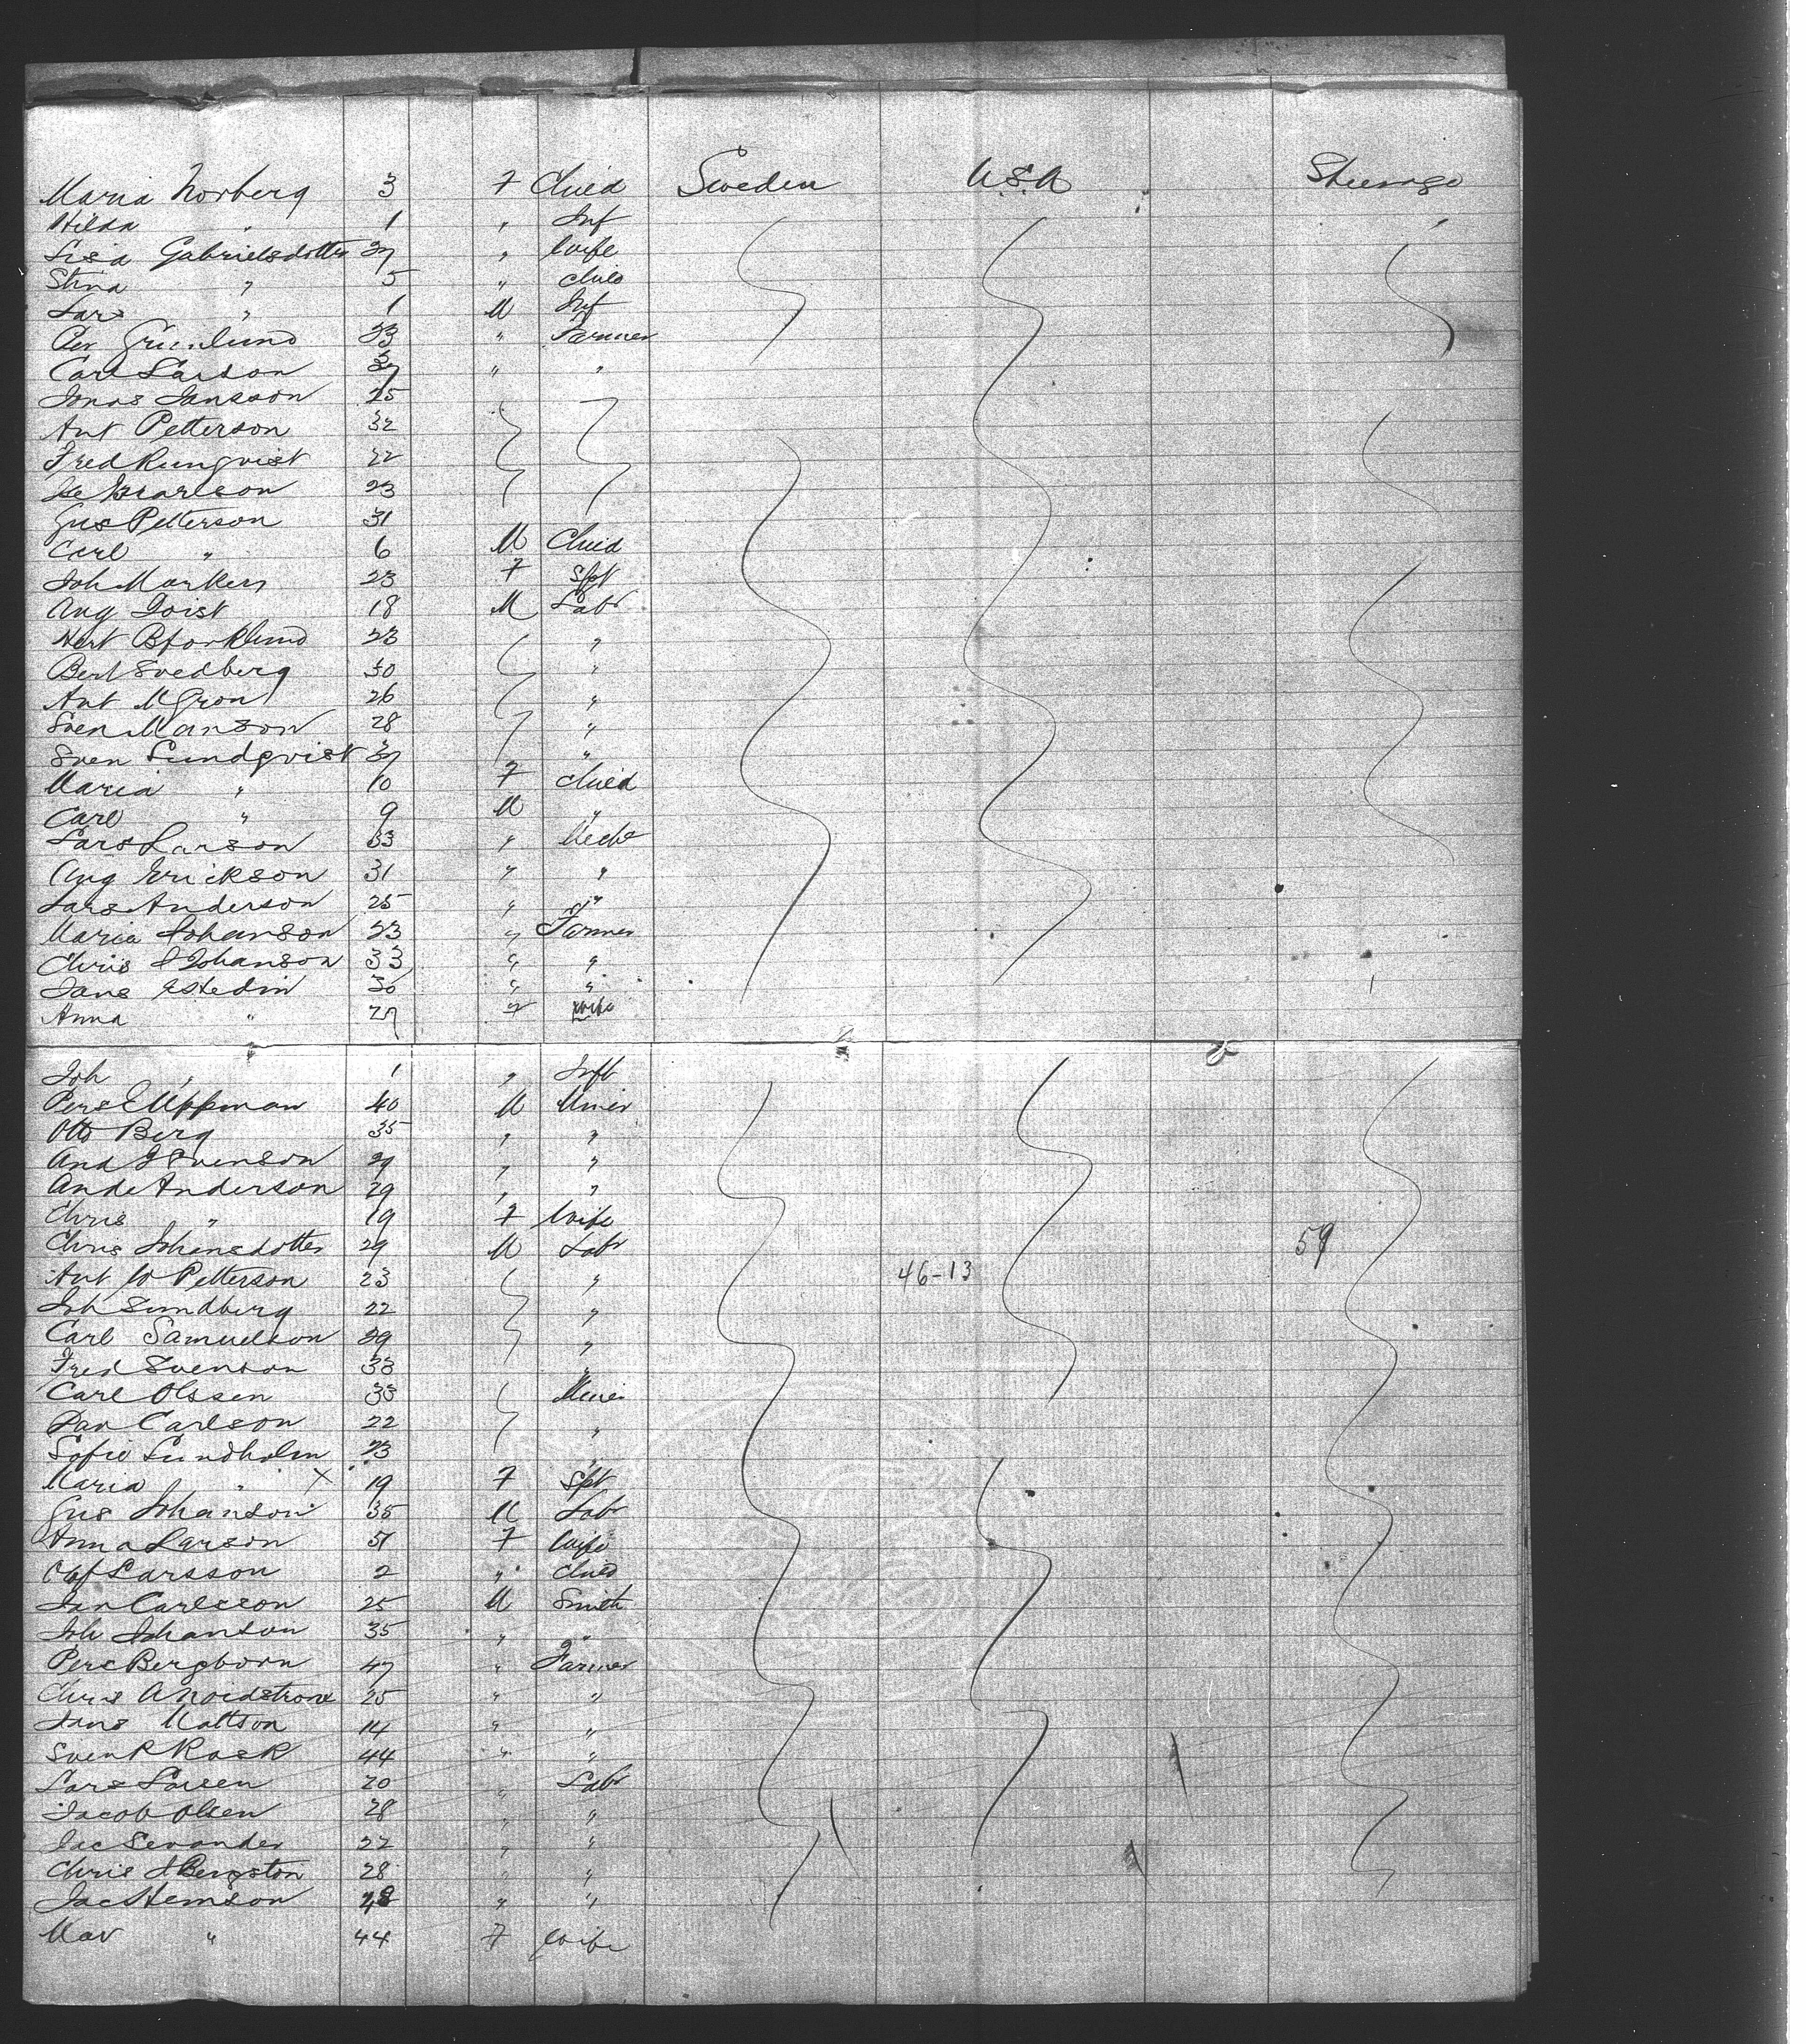 Maria Norberg 3 F Child Sweden U.S.A Steerage
Hilda " 1 " Inf
Lisa Gabrielsdotter 37 " Wife
Stina " 5 " Child
Lars " 1 M Inf
Per 33 " Farmer
Carl Larson 37 " "
Jonas Jansson 25
Ant Petterson 32
Fred Rungvist 22
23
Gus Petterson 31
Carl " 6 M Child
Joh 23 F Spt
Aug 18 M Labr
Bjorklund 23 "
Bert Svedberg 30 "
Ant 26 "
Sven Manson 28 "
Sven Lundqvist 37 "
Maria " 10 F Child
Carl " 9 M "
Lars Larson 33 "
Aug Erickson 31 " "
Lars Anderson 25 " "
Maria Johanson 23 " Farmer
Chris J Johanson 33 " "
" "
Anna " 27 F Wife
Joh " 1 " Inft
Pers E Uppman 40 M Miner
Otto Berg 35 " "
And J Svenson 29 " "
Anderson 29 " "
Chris " 19 F Wife
Chris Johansdotter 29 M Labr 59
Ant W Petterson 23 " 46-13
Joh Sundberg 22 "
Carl Samuelson 29 "
Fred Svenson 33 "
Carl Olssen 33 Miner
Dan Carlson 22 "
Sofie Lundholm 23 "
Maria " X 19 F Spt
Gus Johanson 35 M Labr
Anna Larson 51 F Wife
Olof Larsson 2 " Child
Jan Carlsson 25 M Smith
Joh Johanson 35 " "
Pers Bergborn 47 " Farmer
Chris A Nordstrom 25 " "
Jans Mattson 14 " "
Sven P Rask 44 " "
Lars Larsen 20 " Labr
Jacob Olsen 28 " "
Jac 22 " "
Chris J Bergston 28 " "
Jac 48 " "
" 44 F Wife